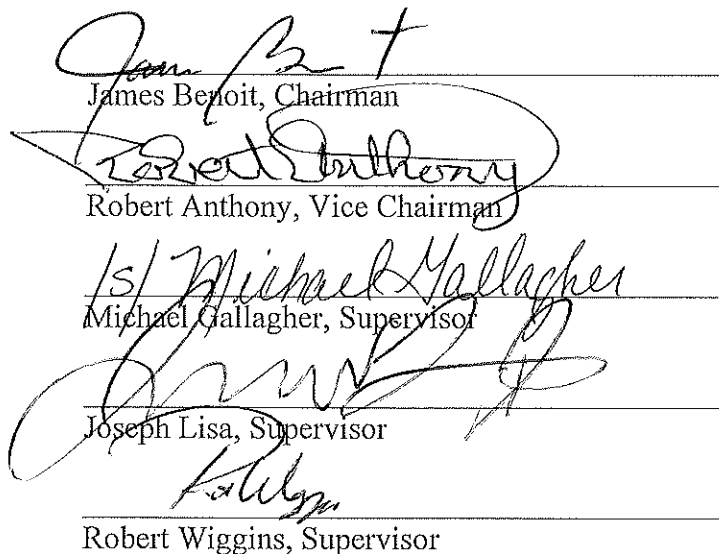 James Benoit, Chairman
Robert Anthony
Robert Anthony, Vice Chairman
/s/ Michael Gallagher
Michael Gallagher, Supervisor
Joseph Lisa, Supervisor
Robert Wiggins, Supervisor